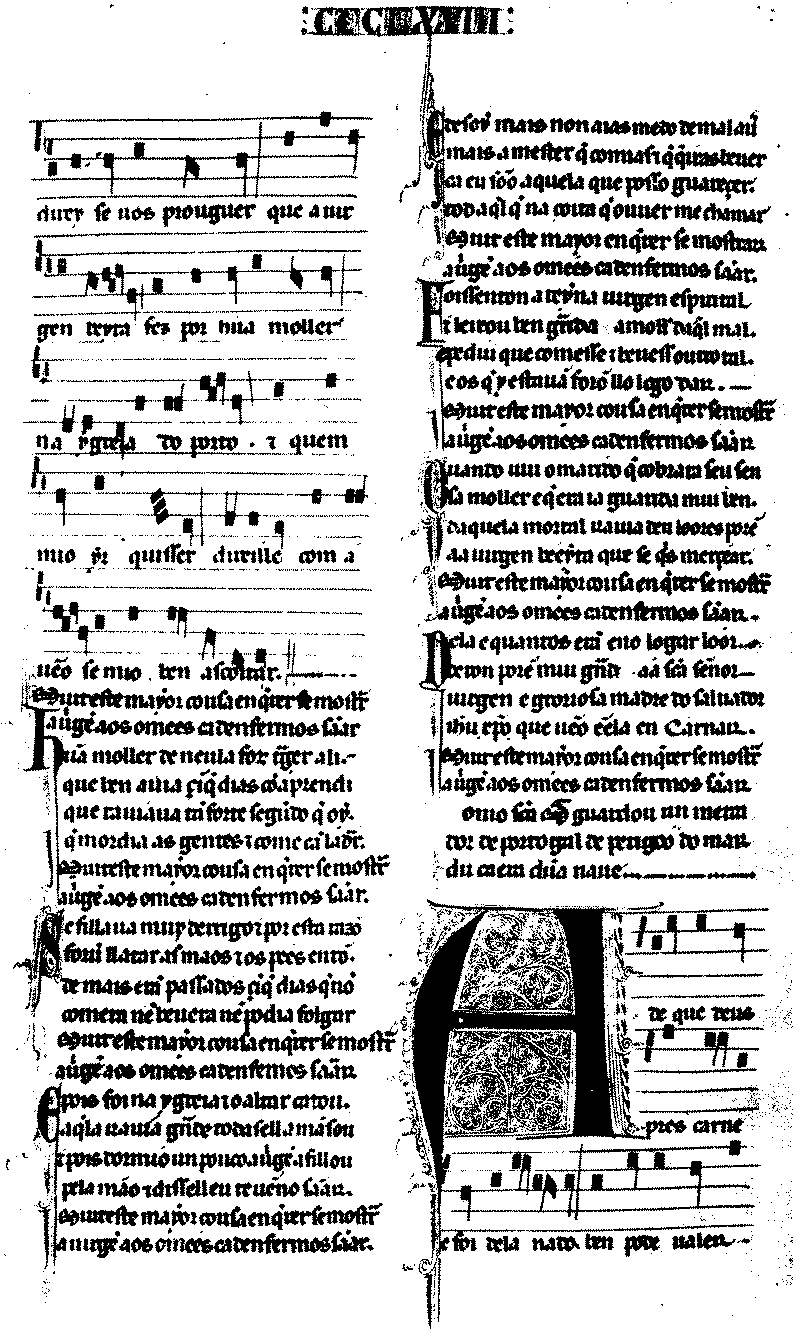 CCCLXXIII
dizer se uos prouguer que a uir
gen beyta fez por hũa moller
na ygreia do porto . τ quem
muo yr quisser diruille com a
ueo se muo ben ascoitar.
Muit este mayor cousa en q̇rer se mostr̄
a uirgē aos omēes ca d enfermos sãar
Hũa moller de neula foi q̄ger ali
que ben auia çīq̄ dias cō aprendi
que rauiaua tã forte segũdo q̄ oy.
q̄ mordia as gentes τ come cã ladr̄.
Muit este mayor cousa en q̇rer se mostr̄
a uirgē aos omēes ca d enfermos sãar.
E fillaua muy de rrigo por esta razō
forū ll atar as maos τ os pees entō.
De mais erā passados çīq̄ dias q̄ nō
comera nē beuera nē podia folgar
Muit este mayor cousa en q̇rer se mostr̄
a uirgē aos omēes ca d enfermos sãar.
E pois foi na ygreia τ o altar catou.
aq̄la rauia grãde toda se ll amãsou
τ pois dormiu un pouco. a uirgē a fillou
pela mão τ diss ell eu te ueno sãar.
Muit este mayor cousa en q̇rer se mostr̄
a uirgē aos omēes ca d enfermos sãar.
E des oy mais non aias medo de mal auer
mais a mester q̄ comas τ q̄ q̇ras beuer
ca eu sōō aquela que posso guareçer.
todaq̄l q̄ na coita q̄ ouuer me chamar
Muit este mayor en q̇rer se mostrar.
a uirgē aos omēes ca d enfermos sãar.
Foisse nton a reyna uirgen espirital
E leixou ben grãda a moll daq̄l mal.
e pediu que comesse τ beuess outro tal.
e os q̄ y estauã forō llo logo dar.
Muit este mayor cousa en q̇rer se mostr̄
a uirgē aos omēes ca d enfermos sãar.
Quando uiu o marido q̄ cobrara seu sen
sa moller e q̄ era ia guarida mui ben.
daquela mortal rauia deu loores poren
aa uirgen beeyta que se q̇s merçear.
Muit este mayor cousa en q̇rer se mostr̄
a uirgē aos omēes ca d enfermos sãar.
Ela e quantos erã eno logar loor
deron porē mui grãd aa sc̄a señor
uirgen e groriosa madre do saluador
ihū xp̄o que uēo ēela en Carnar.
Muit este mayor cousa en q̇rer se mostr̄
a uirgē aos omēes ca d enfermos sãar.
omo sc̄a guardou un merca
dor de portogal de perigoo do mar
du caera dũa naue
A de que deus
pres carne
e foi dela nado. ben pode ualer